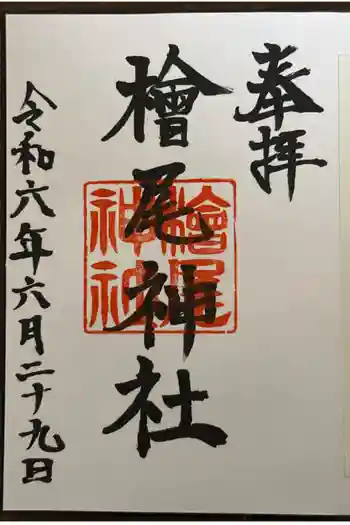 奉拝
檜尾神社
檜尾
神社
令和六年六月二十九日